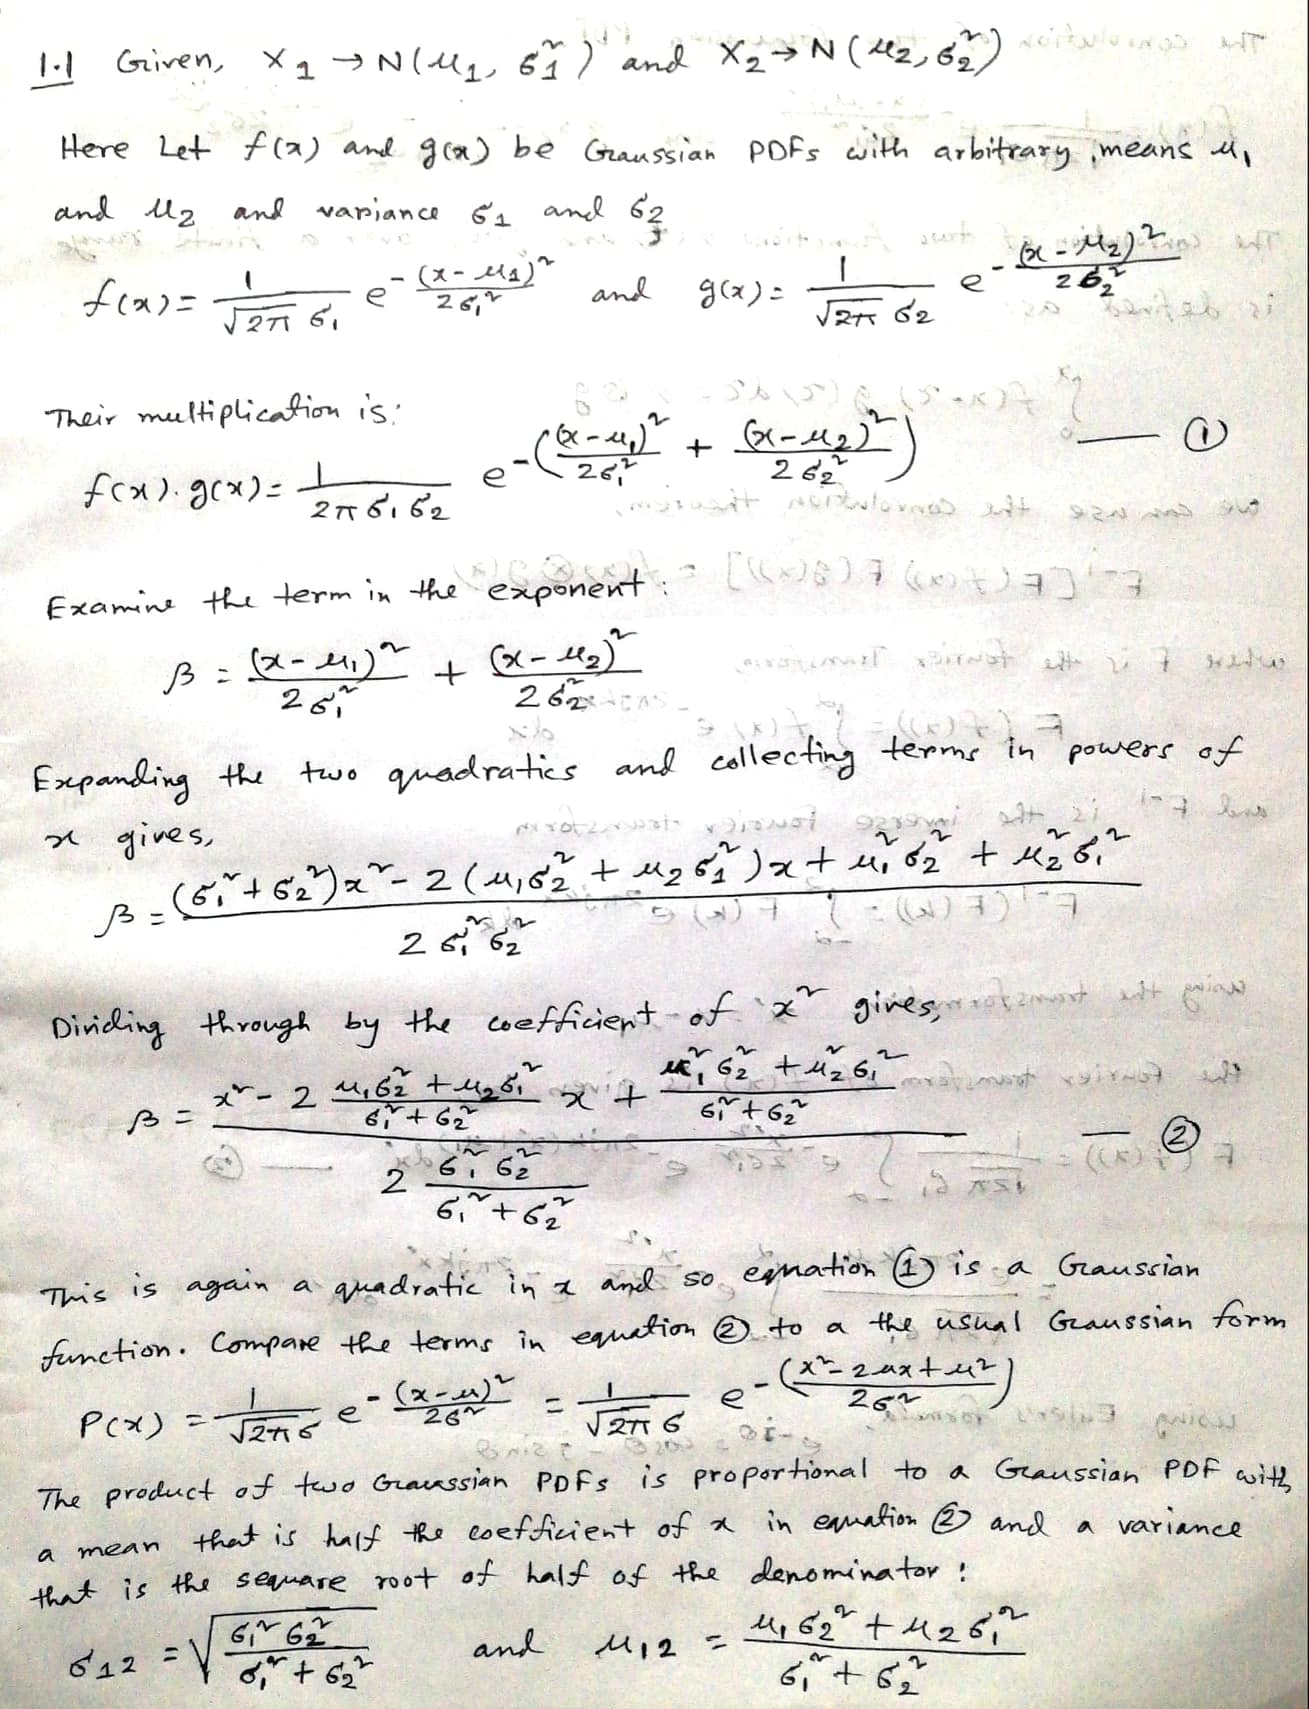 1.1 Given, X₁ → N(μ₁, σ₁²) and X₂ → N(μ₂, σ₂²)
Here Let f(x) and g(x) be Gaussian PDFs with arbitrary means μ₁
and μ₂ and variance σ₁ and σ₂
f(x) = 1/(√2π σ₁) e^-((x-μ₁)²/2σ₁²) and g(x) = 1/(√2π σ₂) e^-((x-μ₂)²/2σ₂²)
Their multiplication is:
f(x).g(x) = 1/(2π σ₁ σ₂) e^-((x-μ₁)²/2σ₁² + (x-μ₂)²/2σ₂²) — ①
Examine the term in the exponent:
β = (x-μ₁)²/2σ₁² + (x-μ₂)²/2σ₂²
Expanding the two quadratics and collecting terms in powers of
x gives,
β = ((σ₁²+σ₂²)x² - 2(μ₁σ₂² + μ₂σ₁²)x + μ₁²σ₂² + μ₂²σ₁²) / 2σ₁²σ₂²
Dividing through by the coefficient of x² gives,
β = (x² - 2 (μ₁σ₂² + μ₂σ₁²)/(σ₁²+σ₂²) x + (μ₁²σ₂² + μ₂²σ₁²)/(σ₁²+σ₂²)) / (2 σ₁²σ₂²/(σ₁²+σ₂²)) — ②
This is again a quadratic in x and so equation ① is a Gaussian
function. Compare the terms in equation ② to a the usual Gaussian form
P(x) = 1/(√2π σ) e^-((x-μ)²/2σ²) = 1/(√2π σ) e^-((x²-2μx+μ²)/2σ²)
The product of two Gaussian PDFs is proportional to a Gaussian PDF with
a mean that is half the coefficient of x in equation ② and a variance
that is the sequare root of half of the denominator:
σ₁₂ = √(σ₁²σ₂²/(σ₁²+σ₂²)) and μ₁₂ = (μ₁σ₂² + μ₂σ₁²)/(σ₁²+σ₂²)